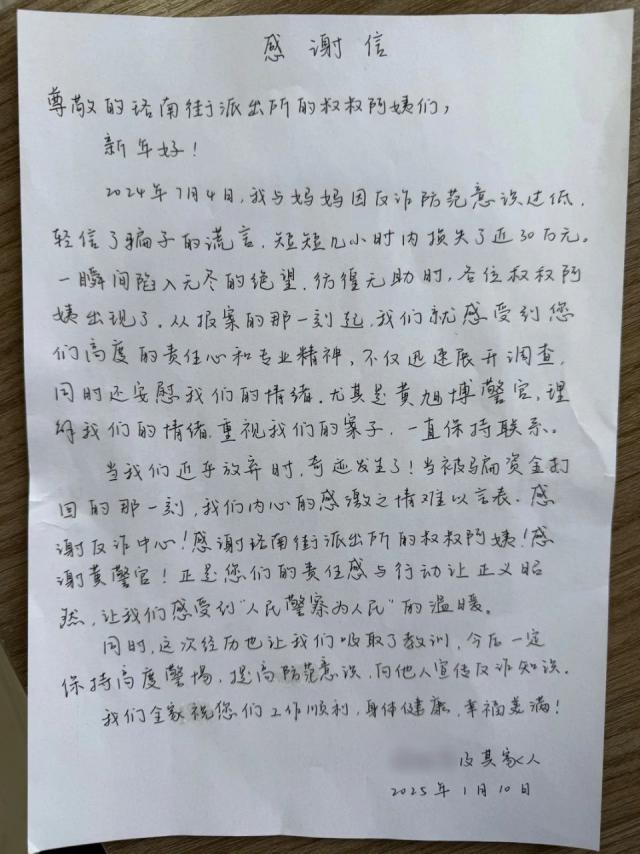 感谢信
尊敬的珞南街派出所的叔叔阿姨们，
新年好！
2024年7月4日，我与妈妈因反诈防范意识过低，
轻信了骗子的谎言，短短几小时内损失了近30万元。
一瞬间陷入无尽的绝望，彷徨无助时，各位叔叔阿
姨出现了。从报案的那一刻起，我们就感受到您
们高度的责任心和专业精神，不仅迅速展开调查，
同时还安慰我们的情绪。尤其是黄旭博警官，理
解我们的情绪，重视我们的案子，一直保持联系。
当我们近乎放弃时，奇迹发生了！当被骗资金打
回的那一刻，我们内心的感激之情难以言表。感
谢反诈中心！感谢珞南街派出所的叔叔阿姨！感
谢黄警官！正是您们的责任感与行动让正义昭
然，让我们感受到“人民警察为人民”的温暖。
同时，这次经历也让我们吸取了教训，今后一定
保持高度警惕，提高防范意识，向他人宣传反诈知识。
我们全家祝您们工作顺利，身体健康，幸福美满！
及其家人
2025年1月10日